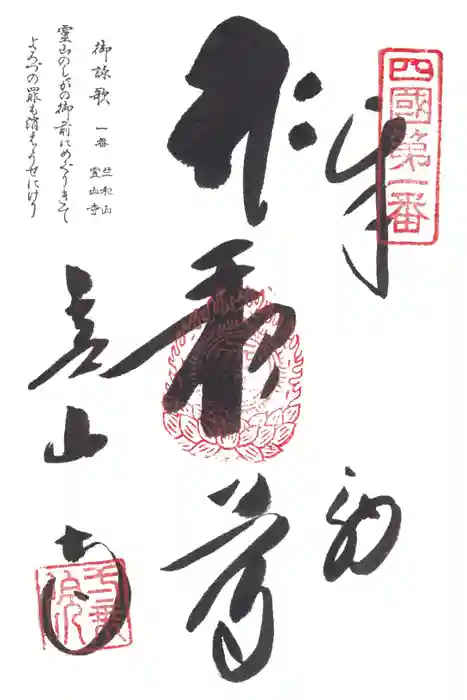 四國第一番
奉
納
尊
靈山寺
御詠歌 一番 竺和山
靈山寺
靈山のしゃかの御前にめぐりきて
よろづの罪も消えうせにけり